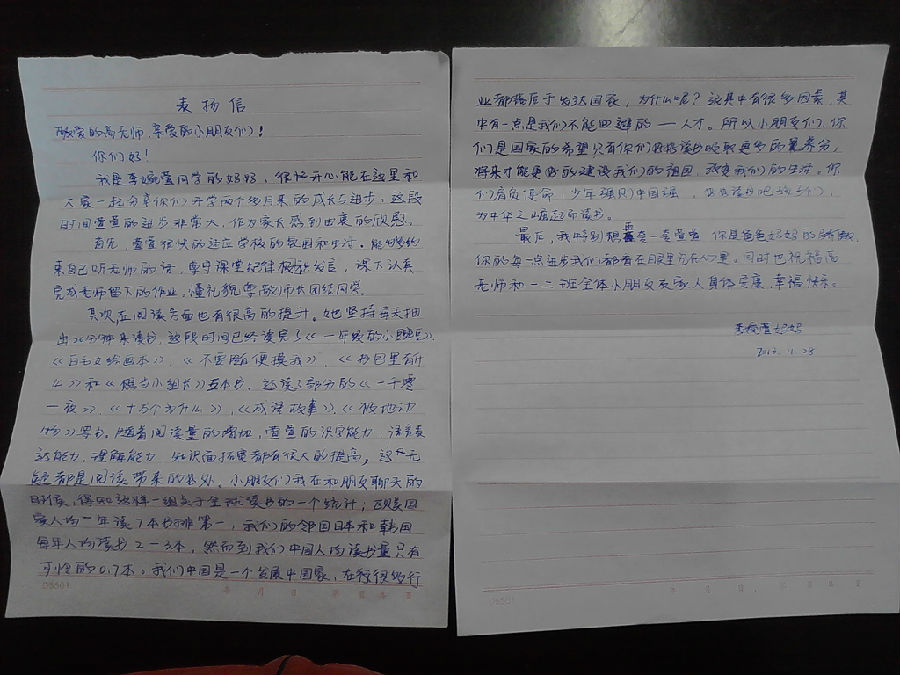 表扬信
敬爱的高老师,亲爱的小朋友们!
你们好!
我是李婉萱同学的妈妈,很开心能在这里和
大家一起分享你们开学两个多月来的成长与进步,这段
时间萱萱的进步非常大,作为家长感到由衷的欣慰。
首先,萱萱很快的适应学校的氛围和生活。能够约
束自己听老师的话,遵守课堂纪律积极发言,课下认真
完成老师留下的作业,懂礼貌尊敬师长团结同学。
其次在阅读方面也有很高的提升。她坚持每天抽
出20分钟来读书,这段时间已经读完了《一年级的小豌豆》
《绘画本》,《不要随便摸我》,《书包里有什
么》和《想当小组长》五本书,还读了部分的《一千零
一夜》,《十万个为什么》,《成语故事》,《陆地动
物》等书。随着阅读量的增加,萱萱的识字能力,语言表
达能力,理解能力,知识面拓展都有很大的提高,这无
疑都是阅读带来的好处。小朋友们我在和朋友聊天的
时候,得知这样一组关于全球读书的一个统计,以色列国
家人均一年读7本书排第一,我们的邻国日本和韩国
每年人均读书2-3本,然而到我们中国人均读书量只有
可怜的0.7本,我们中国是一个发展中国家,在很很多行
业都落后于发达国家,为什么呢?这其中有很多因素,其
中有一点是我们不能回避的——人才。所以小朋友们,你
们是国家的希望只有你们好好读书吸取更多的营养分,
将来才能更好的建设我们的祖国,改变我们的生活。你
们肩负使命,少年强则中国强,读书吧孩子们,
为中华之崛起而读书。
最后,我特别想夸一夸萱萱,你是爸爸妈妈的骄傲,
你的每一点进步我们都看在眼里乐在心里。同时也祝福高
老师和一、二班全体小朋友及家人身体健康,幸福快乐。
李婉萱妈妈
11.23
06501
年 月 日 第 页 共 页
06501
年 月 日 第 页 共 页